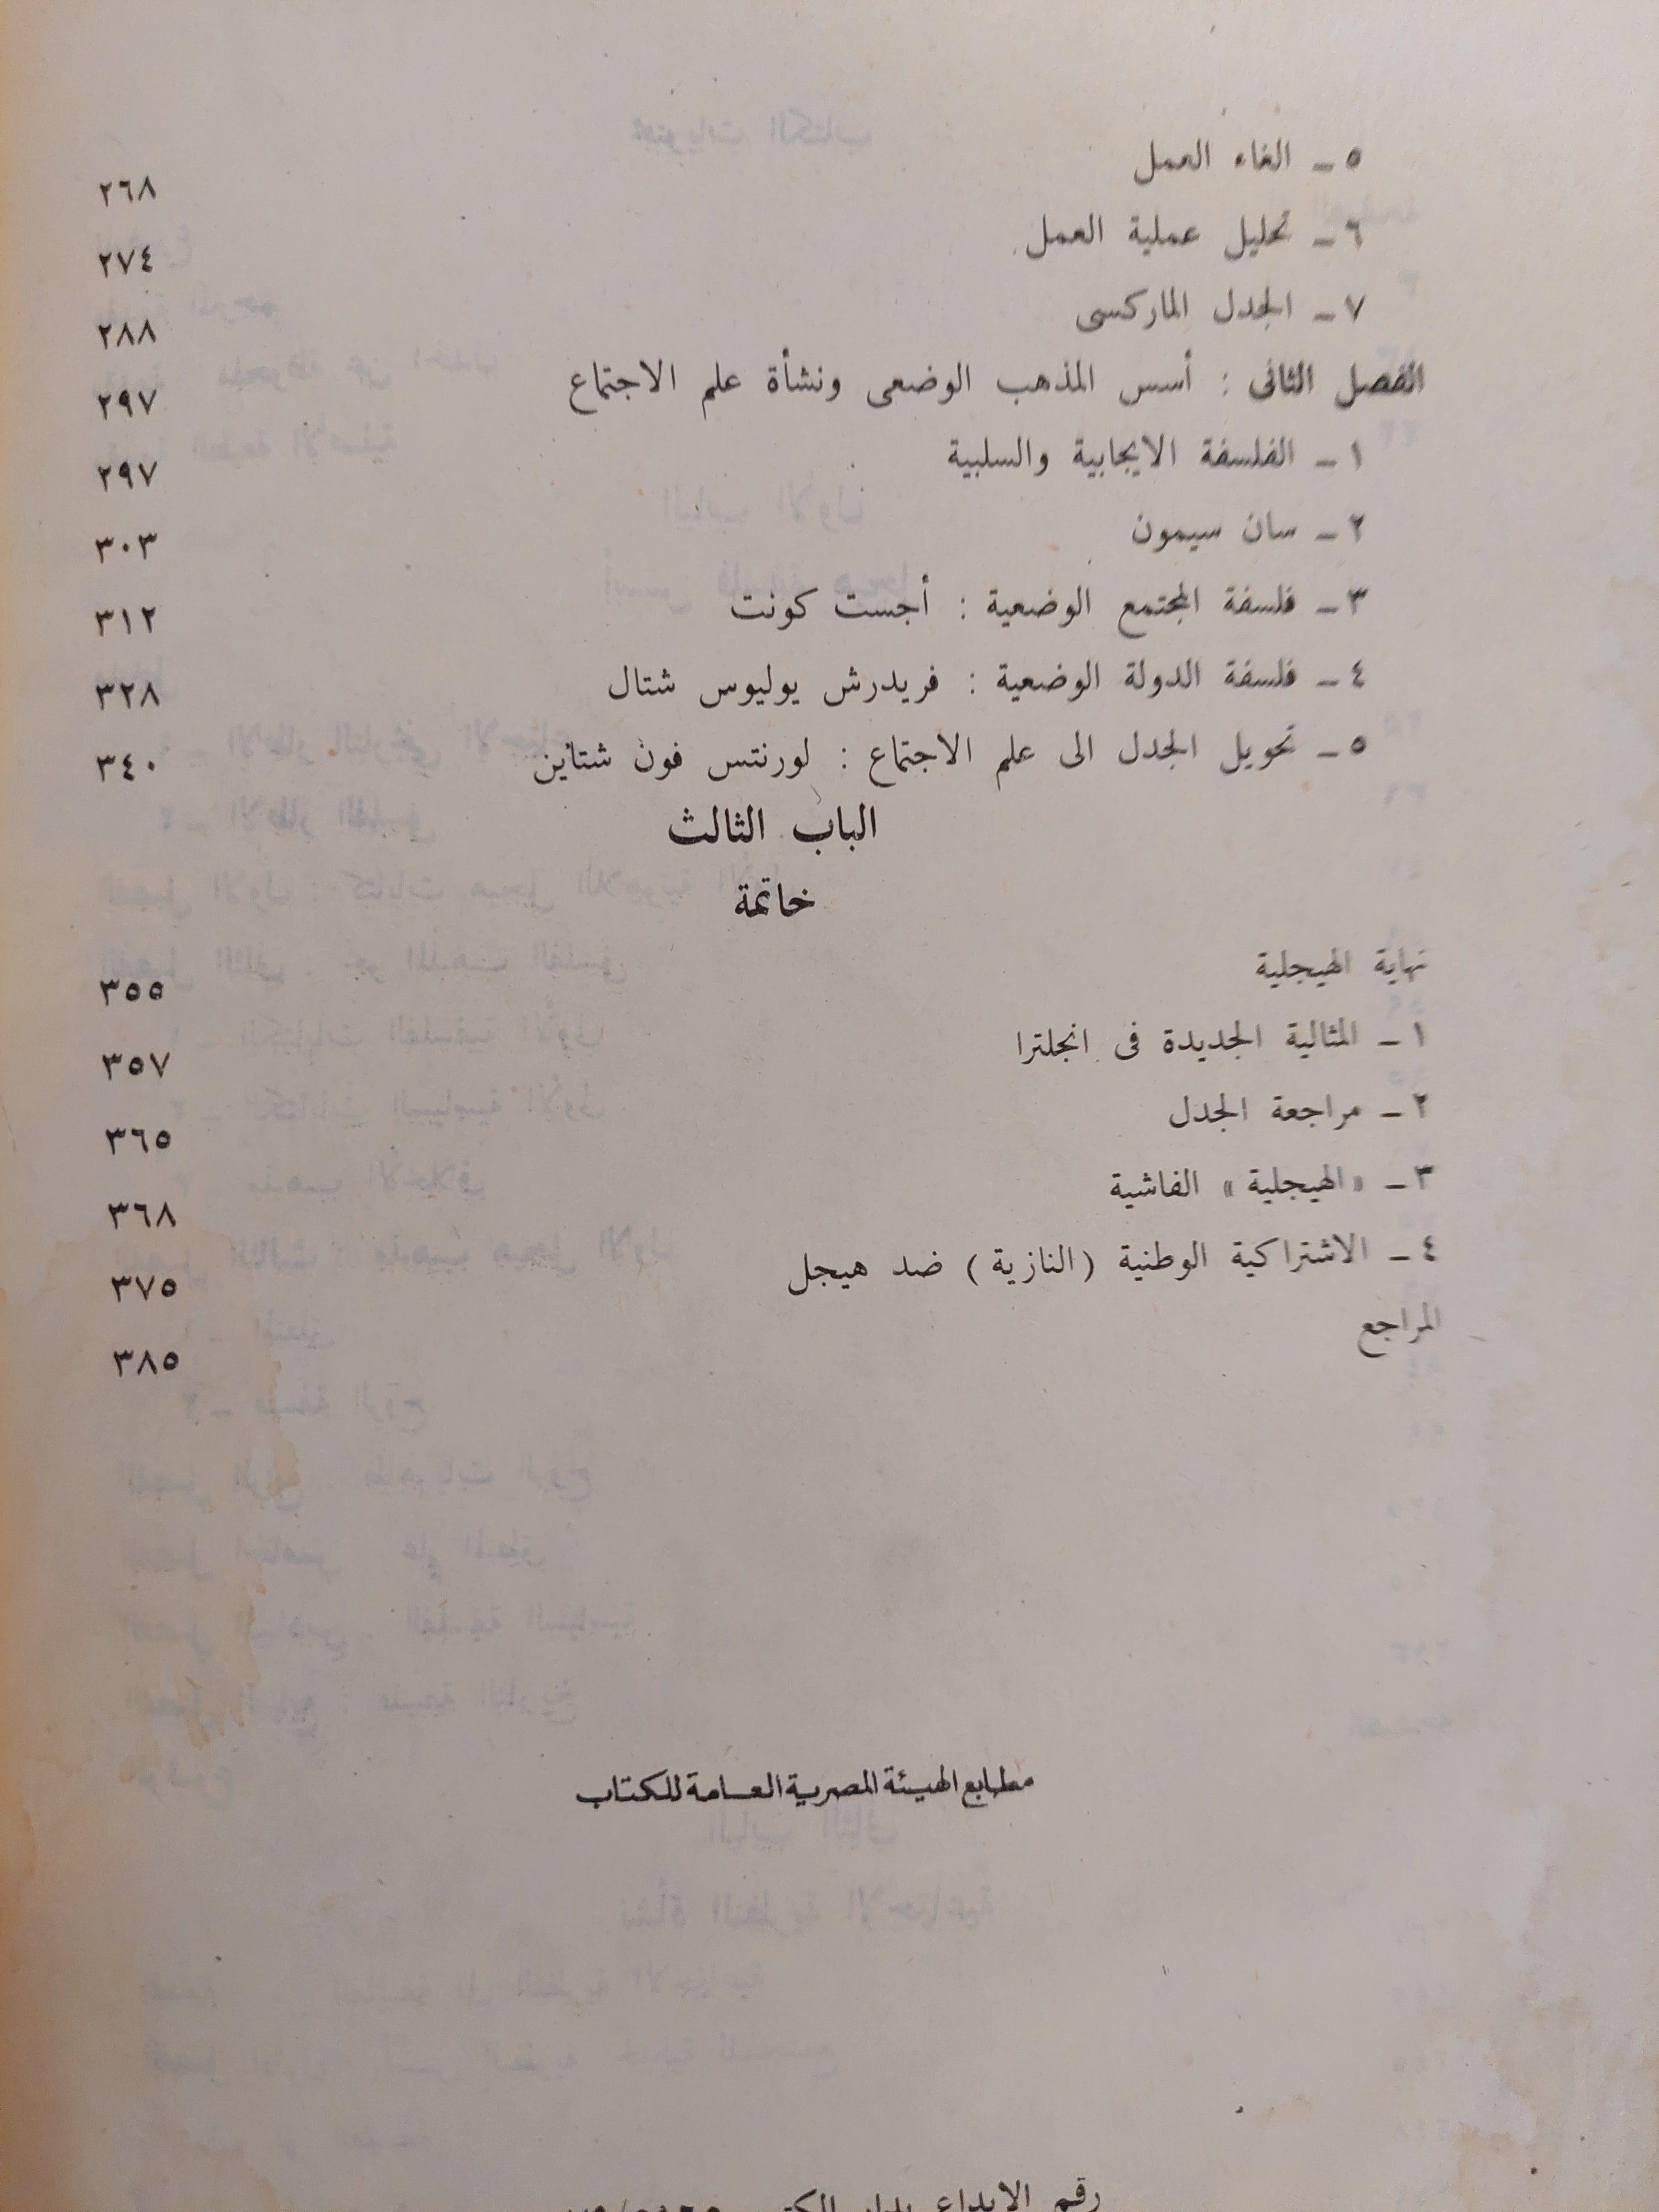 ٥ ــ الغاء العمل ٢٦٨
٦ ــ تحليل عملية العمل ٢٧٤
٧ ــ الجدل الماركسى ٢٨٨
الفصل الثانى : أسس المذهب الوضعى ونشأة علم الاجتماع ٢٩٧
١ ــ الفلسفة الايجابية والسلبية ٢٩٧
٢ ــ سان سيمون ٣٠٣
٣ ــ فلسفة المجتمع الوضعية : أجست كونت ٣١٢
٤ ــ فلسفة الدولة الوضعية : فريدرش يوليوس شتال ٣٢٨
٥ ــ تحويل الجدل الى علم الاجتماع : لورنتس فون شتاين ٣٤٠
الباب الثالث
خاتمة
نهاية الهيجلية ٣٥٥
١ ــ المثالية الجديدة فى انجلترا ٣٥٧
٢ ــ مراجعة الجدل ٣٦٥
٣ ــ «الهيجلية» الفاشية ٣٦٨
٤ ــ الاشتراكية الوطنية (النازية) ضد هيجل ٣٧٥
المراجع ٣٨٥
مطابع الهيئة المصرية العامة للكتاب
رقم الايداع بدار الكتب